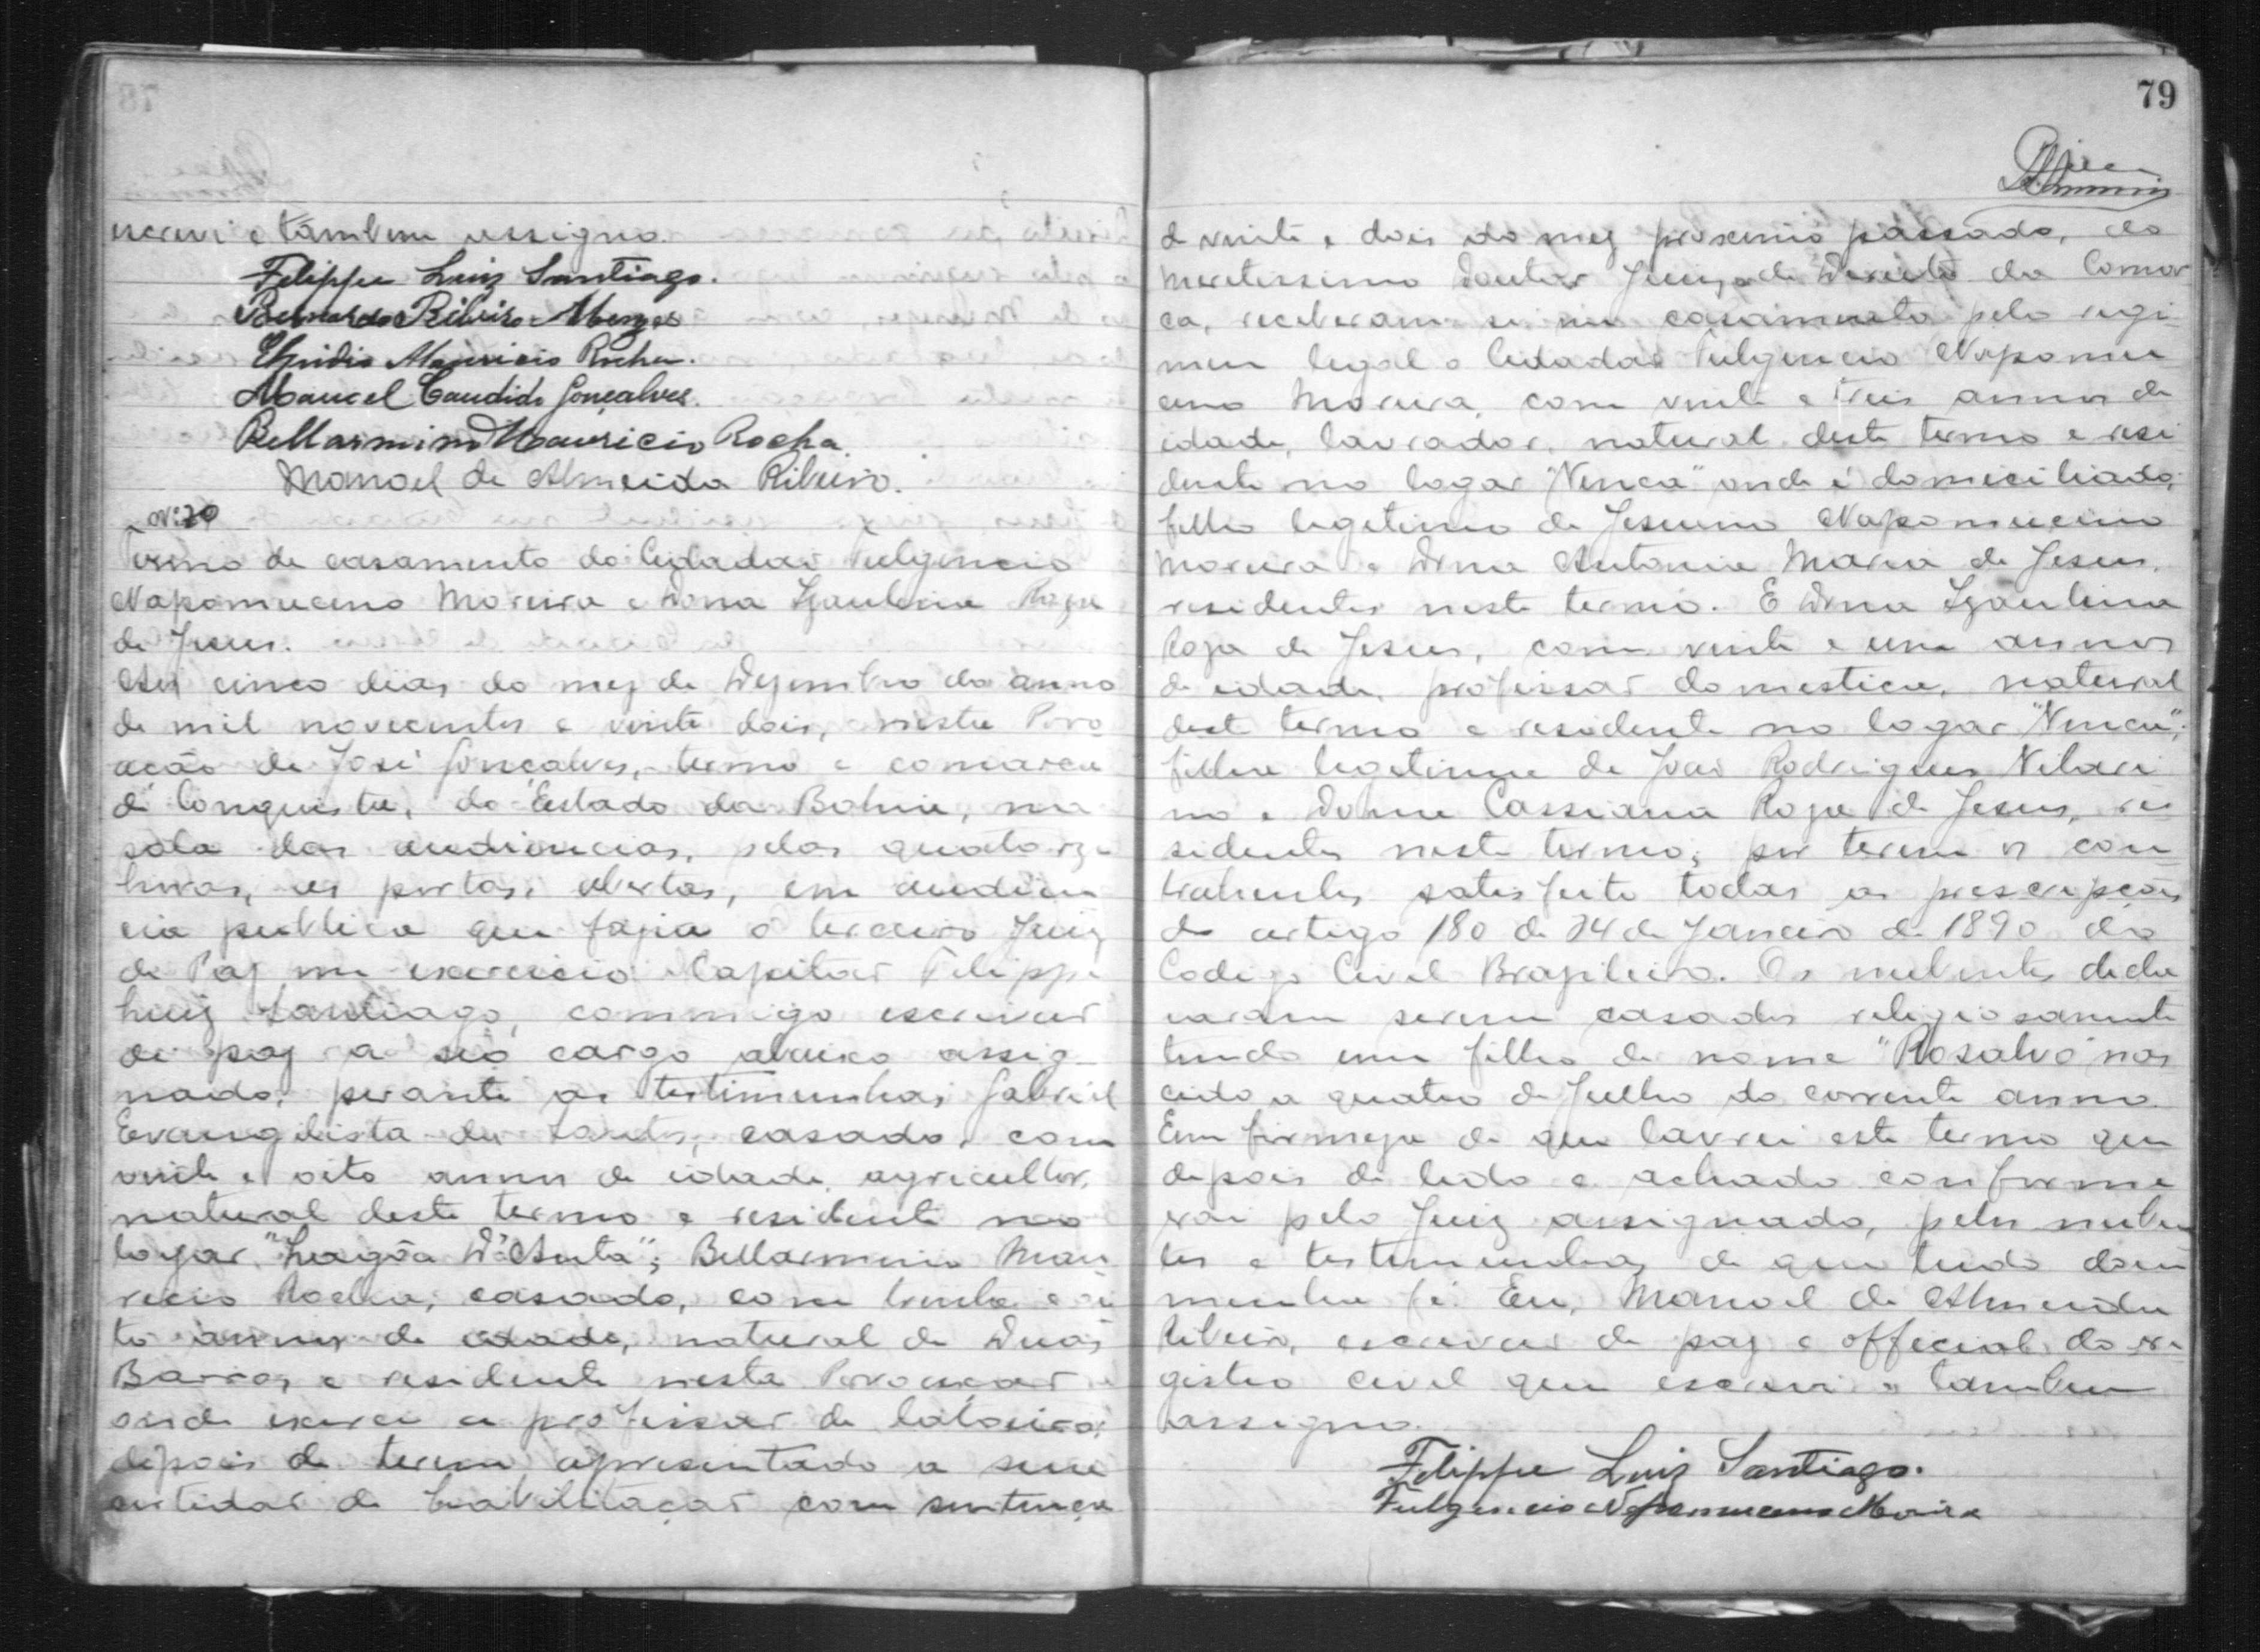 escrevi e tambem assigno.
Filippe Luiz Santiago.
Bernardo Ribeiro Menzes
Elpidio Mauricio Rocha.
Manoel Candido Gonçalves.
Bellarmino Mauricio Rocha
Manoel de Almeida Ribeiro.
Nº: 20
Termo de casamento do Cidadão Fulgencio
Napomuceno Moreira e Dona Izaulina Roza
de Jesus.
Aos cinco dias do mez de Dezembro do anno
de mil novecentos e vinte dois, nesta Povo
ação de José Gonçalves, termo e comarca
de Conquista, do Estado da Bahia, na
sala das audiencias, pelas quatorze
horas, as portas abertas, em audien
cia publica que fazia o terceiro Juiz
de Paz em exercicio Capitão Filippe
Luiz Santiago, commigo escrivão
de paz a seo cargo abaixo assig
nado, perante as testimunhas Gabriel
Evangelista dos Santos, casado, com
vinte e oito annos de idade, agricultor,
natural deste termo e residente no
logar "Lagôa D'Anta"; Bellarmino Mau
ricio Rocha, casado, com trinta e oi
to annos de idade, natural de Duas
Barras e residente nesta Povoação
onde exerce a profissão de
depois de terem apresentado a sua
certidão de habilitação com sentença
79
de vinte e dois do mez proximo passado, do
Meretissimo Doutor Juiz de Direito da Comar
ca, receberam-se em casamento pelo regi
men legal o Cidadão Fulgencio Napomu
ceno Moreira, com vinte e treis annos de
idade, lavrador, natural deste termo e resi
dente no logar "Venca" onde é domiciliado;
filho legitimo de Jesuino Napomuceno
Moreira e Dona Antonia Maria de Jesus,
residentes neste termo. E Dona Izaulina
Roza de Jesus, com vinte e um annos
de idade, profissão domestica, natural
deste termo e residente no logar "Venca";
filha legitima de João Rodrigues Vilari
no e Dona Cassiana Roza de Jesus, re
sidentes neste termo; por terem os con
trahentes satisfeito todas as prescripções
do artigo 180 de 24 de Janeiro de 1890 do
Codigo Civil Brazileiro. Os nubentes decla
raram serem casados religiosamente
tendo um filho de nome "Rosalvo" nas
cido a quatro de Julho do corrente anno.
Em firmeza de que lavrei este termo que
depois de lido e achado conforme
vai pelo Juiz assignado, pelos nuben
tes e testimunhas de que tudo dou
minha fé. Eu, Manoel de Almeida
Ribeiro, escrivão de paz e official do re
gistro civil que escrevi e tambem
assigno.
Filippe Luiz Santiago.
Fulgencio Napomuceno Moreira